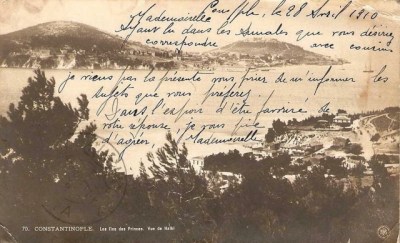 Constantinople, le 28 Avril 1910
Mademoiselle
Ayant lu dans les Annales que vous désirez
correspondre avec cousins
je viens par la présente vous prier de m'informer les
sujets que vous préférez.
Dans l'espoir d'être favorisé de
votre réponse, je vous prie
d'agréer, Mademoiselle
70. CONSTANTINOPLE. Les îles des Princes. Vue de Halki